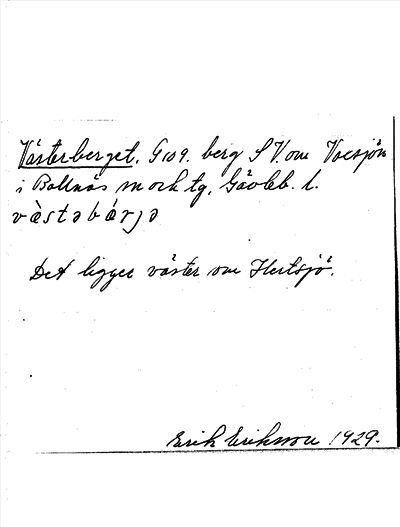 Västerberget. G109. berg SV. om Voxsjön
i Bollnäs sn och tg, Gävleb. l.
vàstəbárjə
Det ligger väster om Hertsjö.
Erik Eriksson 1929.